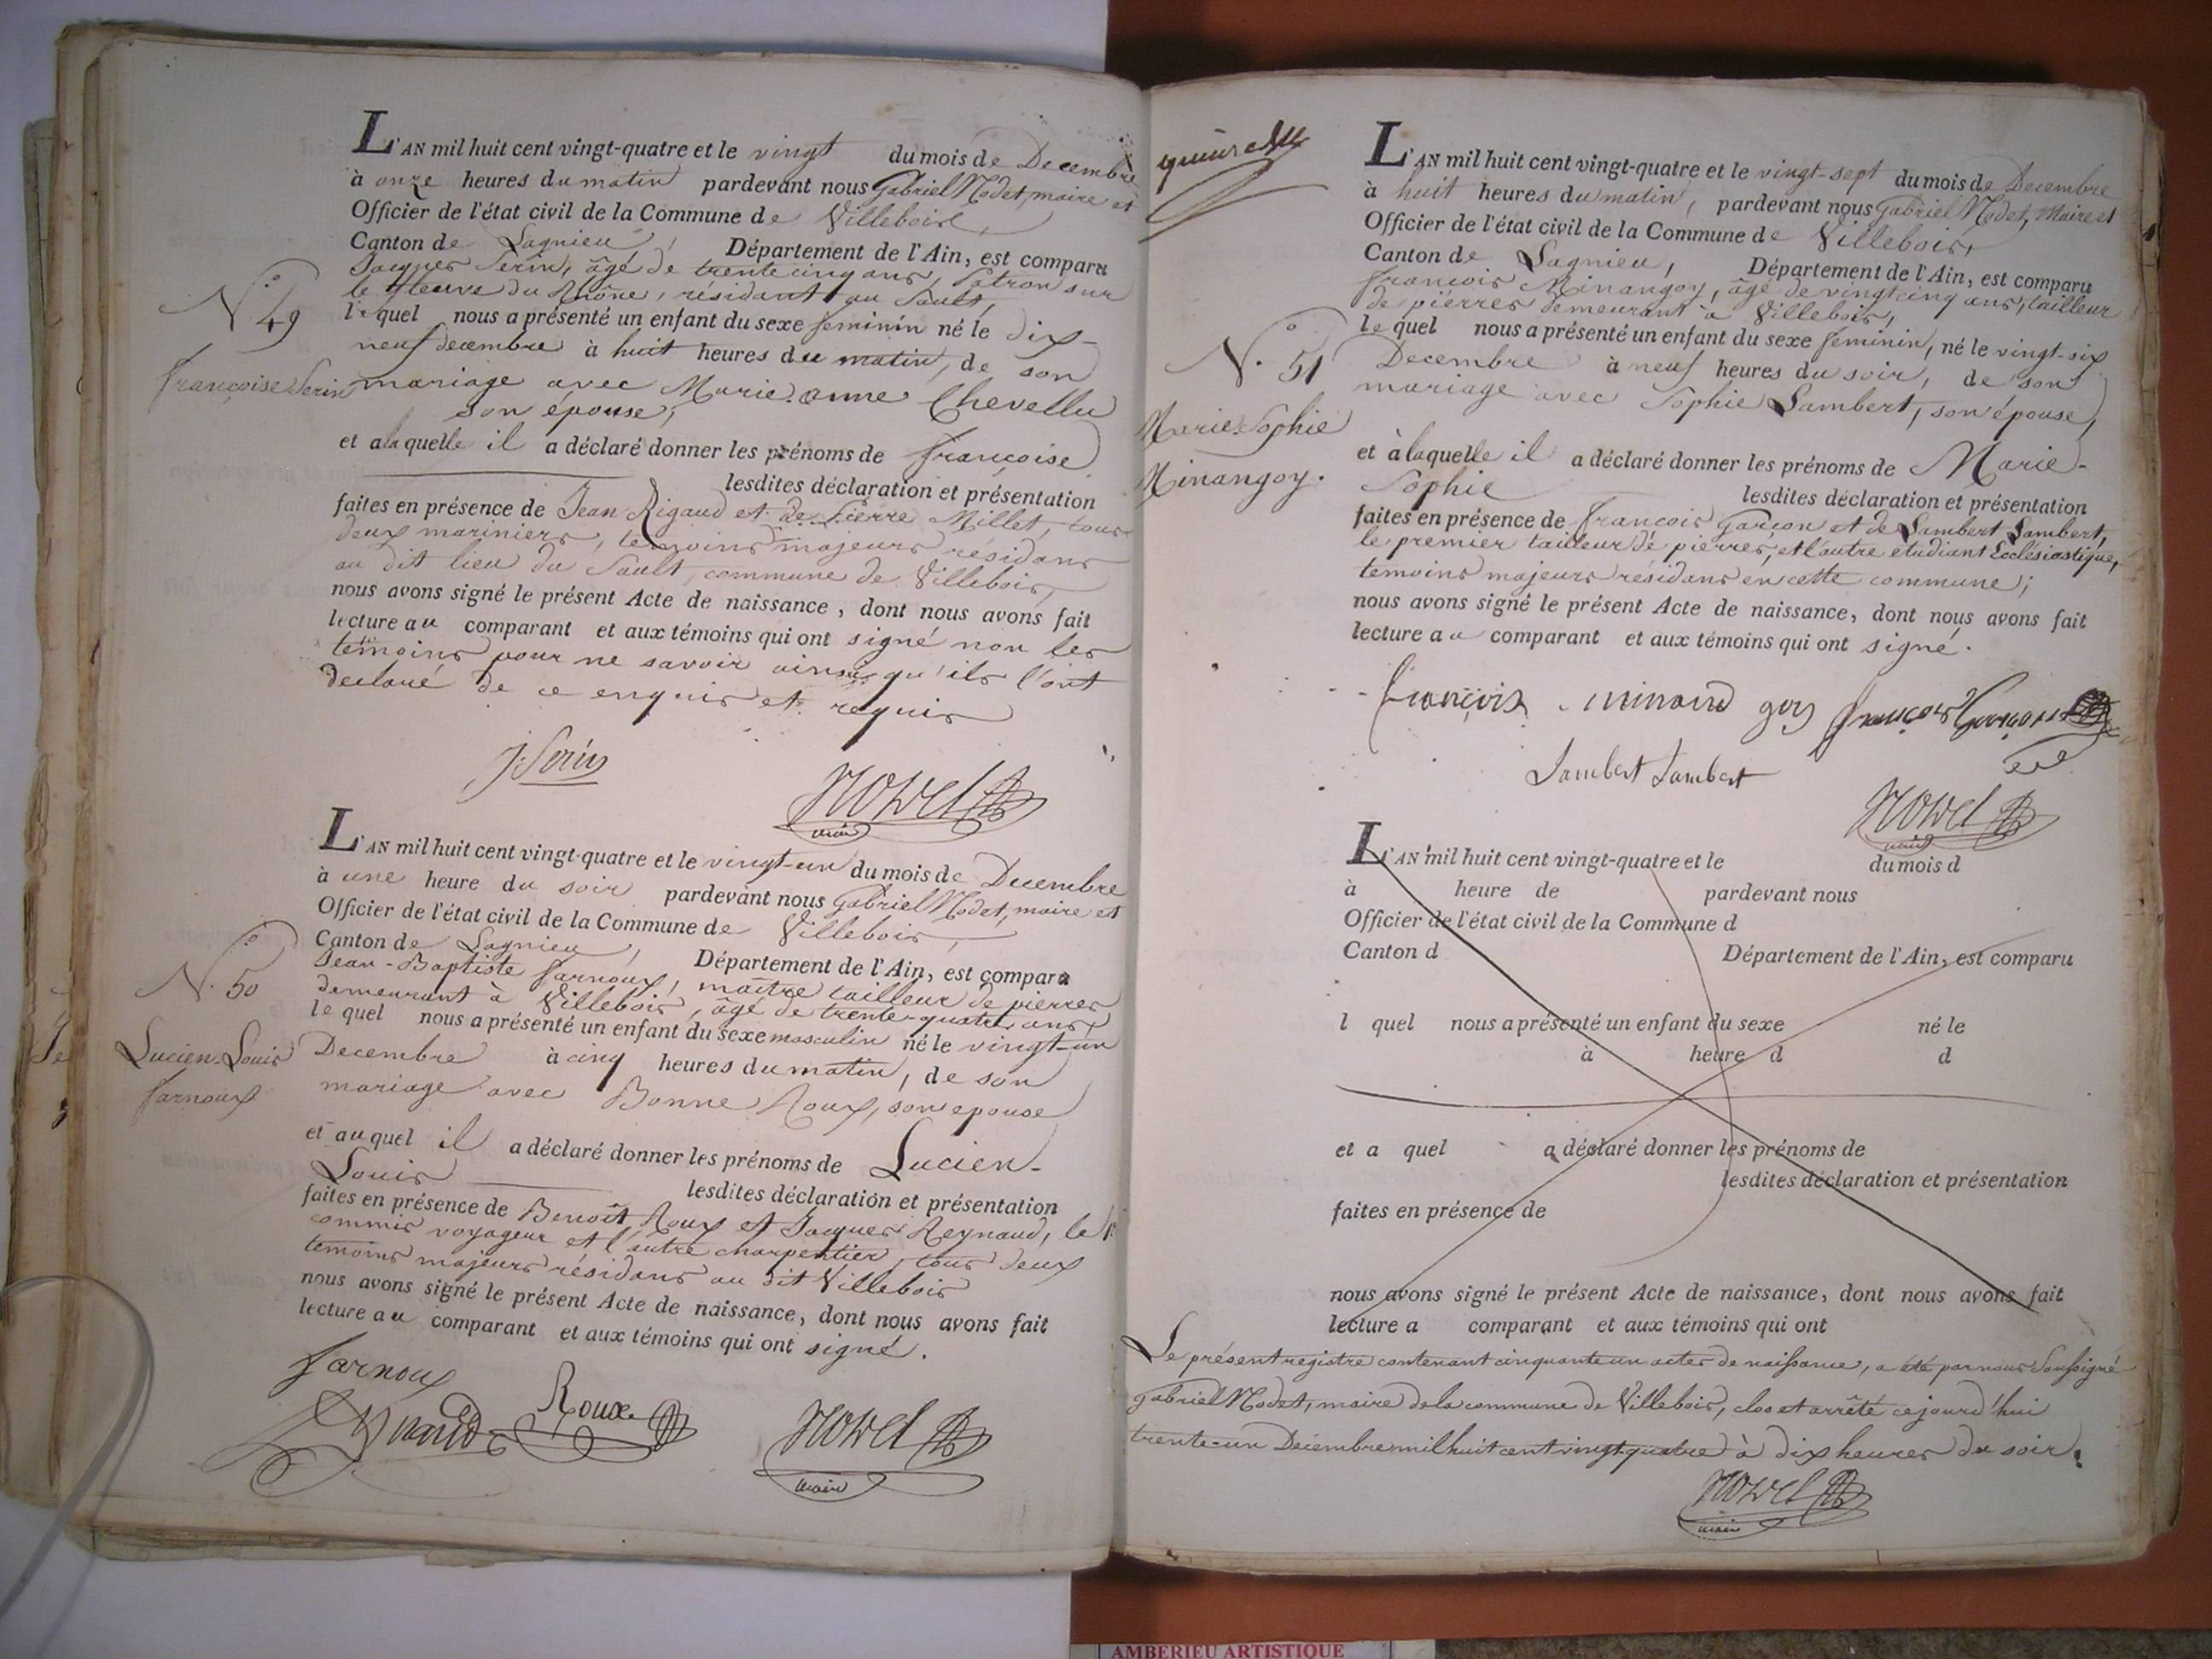 L'AN mil huit cent vingt-quatre et le vingt du mois de Decembre
à onze heures du matin pardevant nous Gabriel Nodet, maire et
Officier de l'état civil de la Commune de Villebois,
Canton de Lagnieu, Département de l'Ain, est comparu
Jacques Serin, âgé de trente cinq ans, Patron sur
le fleuve du Rhône, résidant au Sault,
lequel nous a présenté un enfant du sexe feminin né le dix-
neuf decembre à huit heures du matin, de son
mariage avec Marie-anne Chevellu
son épouse,
et a laquelle il a déclaré donner les prénoms de françoise
lesdites déclaration et présentation
faites en présence de Jean Rigaud et de Pierre Millet, tous
deux mariniers, temoins majeurs résidans
au dit lieu du Sault, commune de Villebois,
nous avons signé le présent Acte de naissance, dont nous avons fait
lecture au comparant et aux témoins qui ont signé non les
temoins pour ne savoir ainsi qu'ils l'ont
declaré de ce enquis et requis
J. Serin
maire
N.° 49
françoise Serin
L'AN mil huit cent vingt-quatre et le vingt-un du mois de Decembre
à une heure du soir pardevant nous Gabriel Nodet, maire et
Officier de l'état civil de la Commune de Villebois,
Canton de Lagnieu, Département de l'Ain, est comparu
Jean-Baptiste farnoux, maître tailleur de pierres
demeurant à Villebois, âgé de trente-quatre ans,
lequel nous a présenté un enfant du sexe masculin né le vingt-un
Decembre à cinq heures du matin, de son
mariage avec Bonne Roux, son epouse
et auquel il a déclaré donner les prénoms de Lucien-
Louis lesdites déclaration et présentation
faites en présence de Benoît Roux et Jacques Reynaud, le 1er
commis voyageur et l'autre charpentier, tous deux
temoins majeurs résidans au dit Villebois
nous avons signé le présent Acte de naissance, dont nous avons fait
lecture au comparant et aux témoins qui ont signé.
farnoux
Roux
maire
N.° 50
Lucien-Louis
farnoux
L'AN mil huit cent vingt-quatre et le vingt-sept du mois de Decembre
à huit heures du matin, pardevant nous Gabriel Nodet, Maire et
Officier de l'état civil de la Commune de Villebois,
Canton de Lagnieu, Département de l'Ain, est comparu
francois Minangoy, âgé de vingt cinq ans, tailleur
de pierres demeurant à Villebois,
lequel nous a présenté un enfant du sexe feminin, né le vingt-six
Decembre à neuf heures du soir, de son
mariage avec Sophie Lambert, son épouse,
et à laquelle il a déclaré donner les prénoms de Marie-
Sophie lesdites déclaration et présentation
faites en présence de francois Garcon et de Lambert Lambert,
le premier tailleur de pierres, et l'autre étudiant Ecclésiastique,
temoins majeurs résidans en cette commune;
nous avons signé le présent Acte de naissance, dont nous avons fait
lecture au comparant et aux témoins qui ont signé.
françois minand goy françois Garçon
Lambert Lambert
maire
N.° 51
Marie-Sophie
Minangoy.
L'AN mil huit cent vingt-quatre et le du mois d
à heure de pardevant nous
Officier de l'état civil de la Commune d
Canton d Département de l'Ain, est comparu
l quel nous a présenté un enfant du sexe né le
à heure d d
et a quel a déclaré donner les prénoms de
lesdites déclaration et présentation
faites en présence de
nous avons signé le présent Acte de naissance, dont nous avons fait
lecture a comparant et aux témoins qui ont
Le présent registre contenant cinquante un actes de naissance, a été par nous Soussigné
Gabriel Nodet, maire de la commune de Villebois, clos et arrêté cejourd'hui
trente-un Decembre mil huit cent vingt-quatre à dix heures du soir.
maire
AMBERIEU ARTISTIQUE